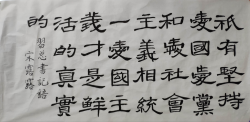 祇有堅持
愛國愛黨
和愛社會
主義相統
一愛國主
義才是鮮
活的真實
的
習总書記語
宋露露